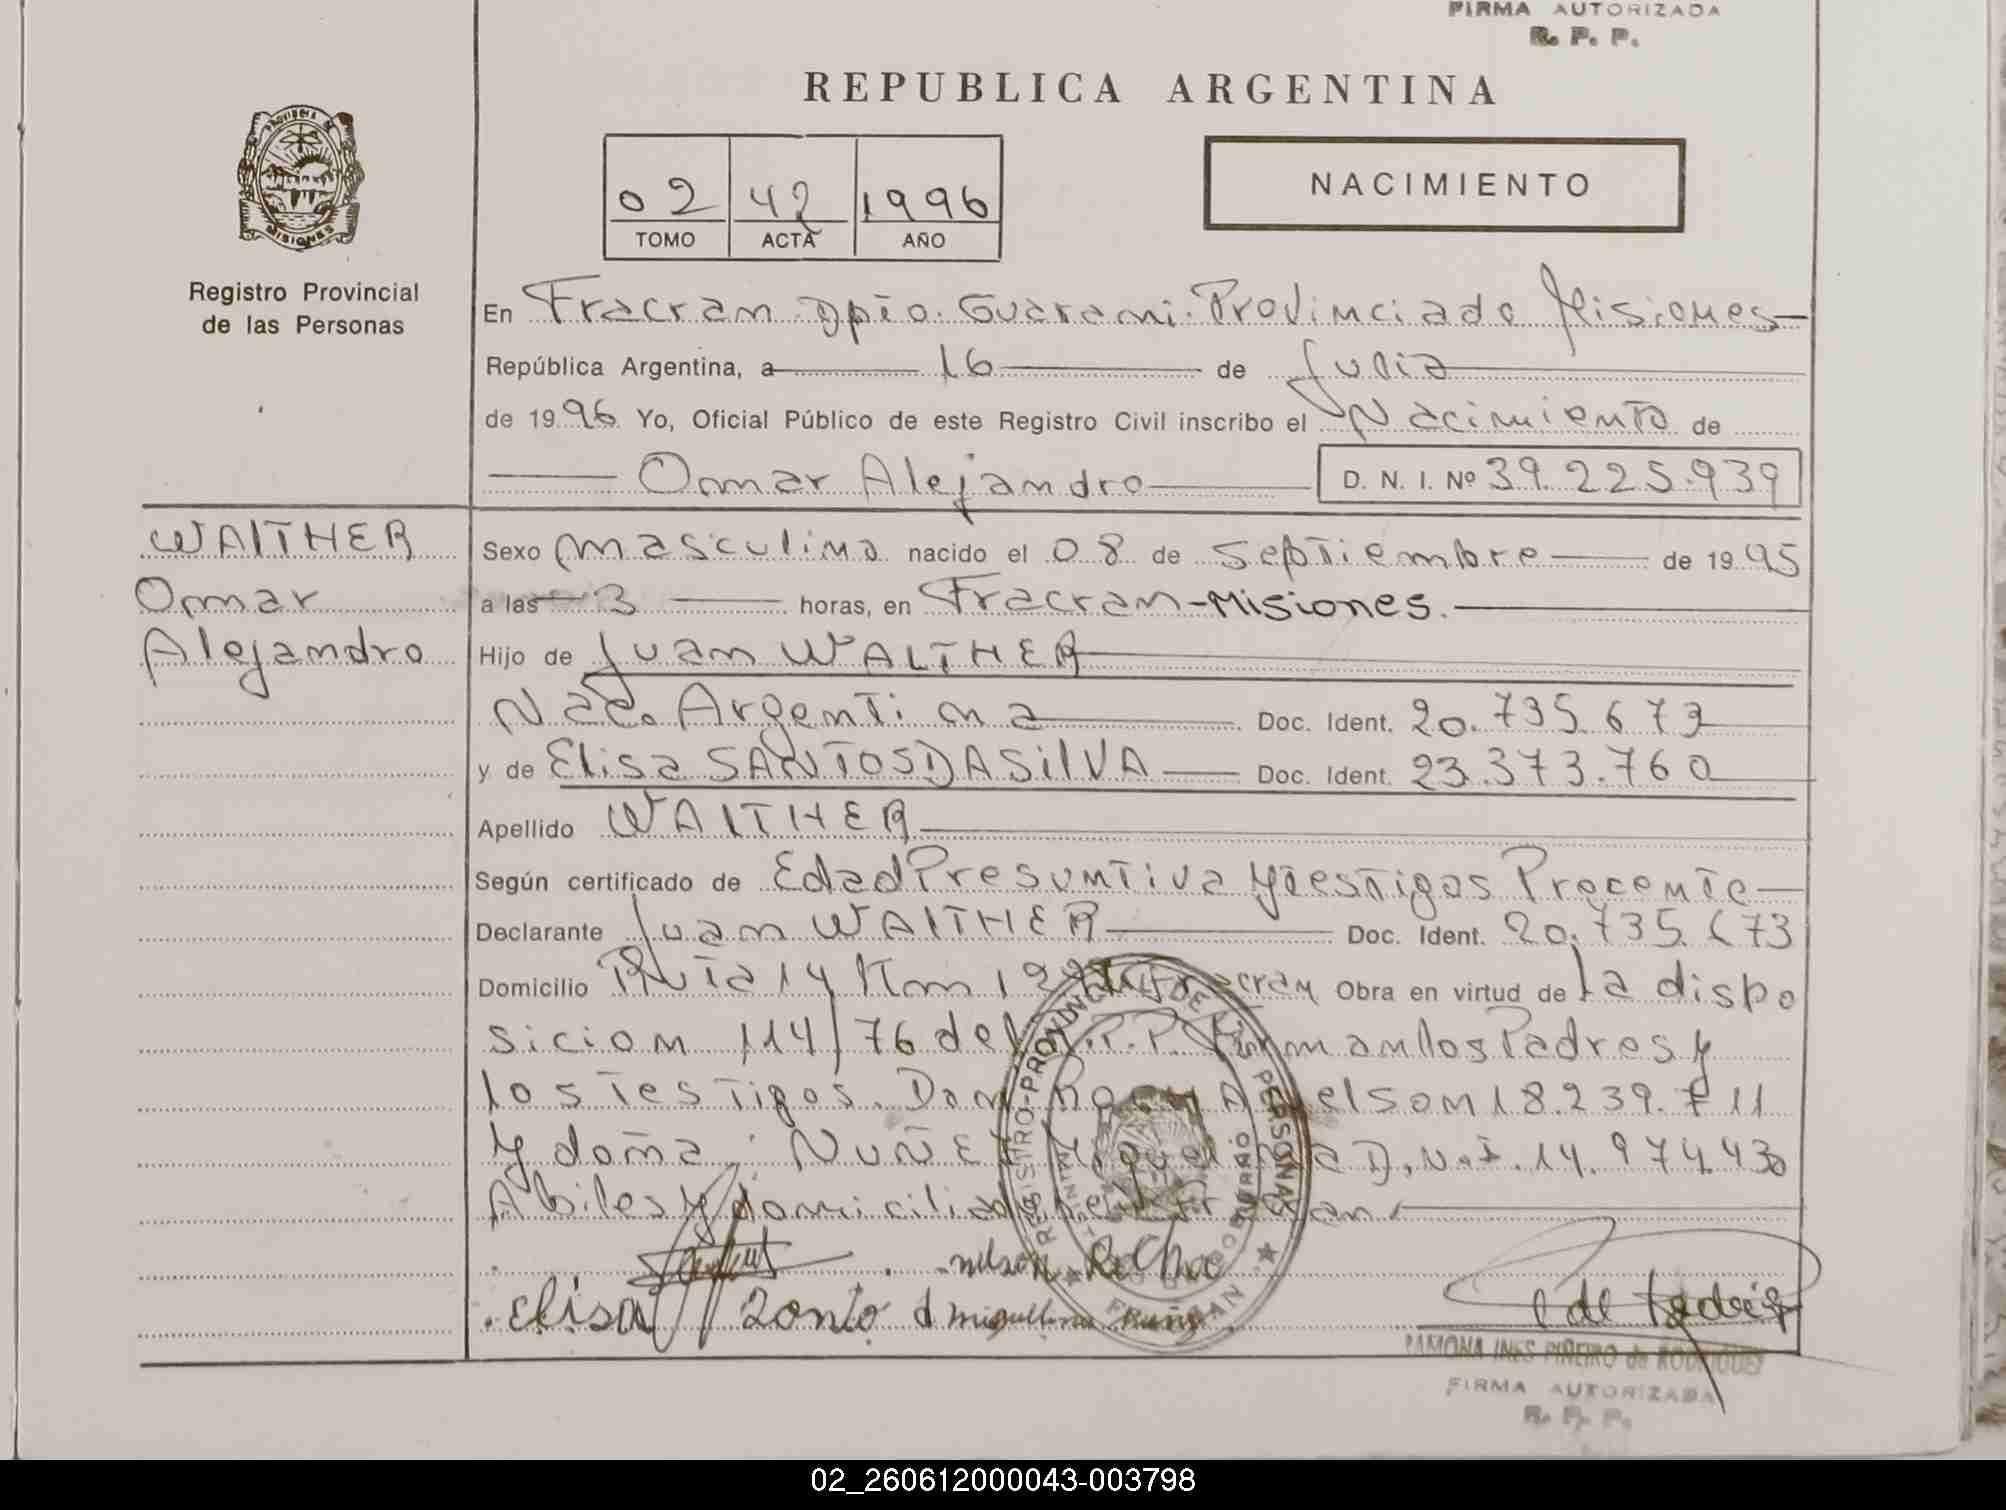 FIRMA AUTORIZADA
R. P. P.
REPUBLICA ARGENTINA
PROVINCIA DE
MISIONES
Registro Provincial
de las Personas
02 42 1996
TOMO ACTA AÑO
NACIMIENTO
En Fracran Dpto. Guarani. Provincia de Misiones
República Argentina, a 16 de Julio
de 1996 Yo, Oficial Público de este Registro Civil inscribo el Nacimiento de
Omar Alejandro D. N. I. Nº 39.225.939
WALTHER
Omar
Alejandro
Sexo Masculino nacido el 08 de Septiembre de 1995
a las 3 horas, en Fracran-Misiones.
Hijo de Juan WALTHER
Nac. Argentina Doc. Ident. 20.735.673
y de Elisa SANTOS DA SilVA Doc. Ident. 23.373.760
Apellido WALTHER
Según certificado de Edad Presuntiva y Testigos Precente
Declarante Juan WALTHER Doc. Ident. 20.735.673
Domicilio Ruta 14 Km Fracran Obra en virtud de la dispo
sicion 114/76 del R.P.P. Firman los Padres y
los Testigos. Don Nelson 18.239.711
y doña: NUÑEZ D.N.I. 14.974.430
Abiles y domiciliados en Fracran
nelson Rocha
Elisa
REGISTRO PROVINCIAL DE LAS PERSONAS
FRACRAN
RAMONA INES PIÑEIRO de RODRIGUEZ
FIRMA AUTORIZADA
R. P. P.
02_260612000043-003798